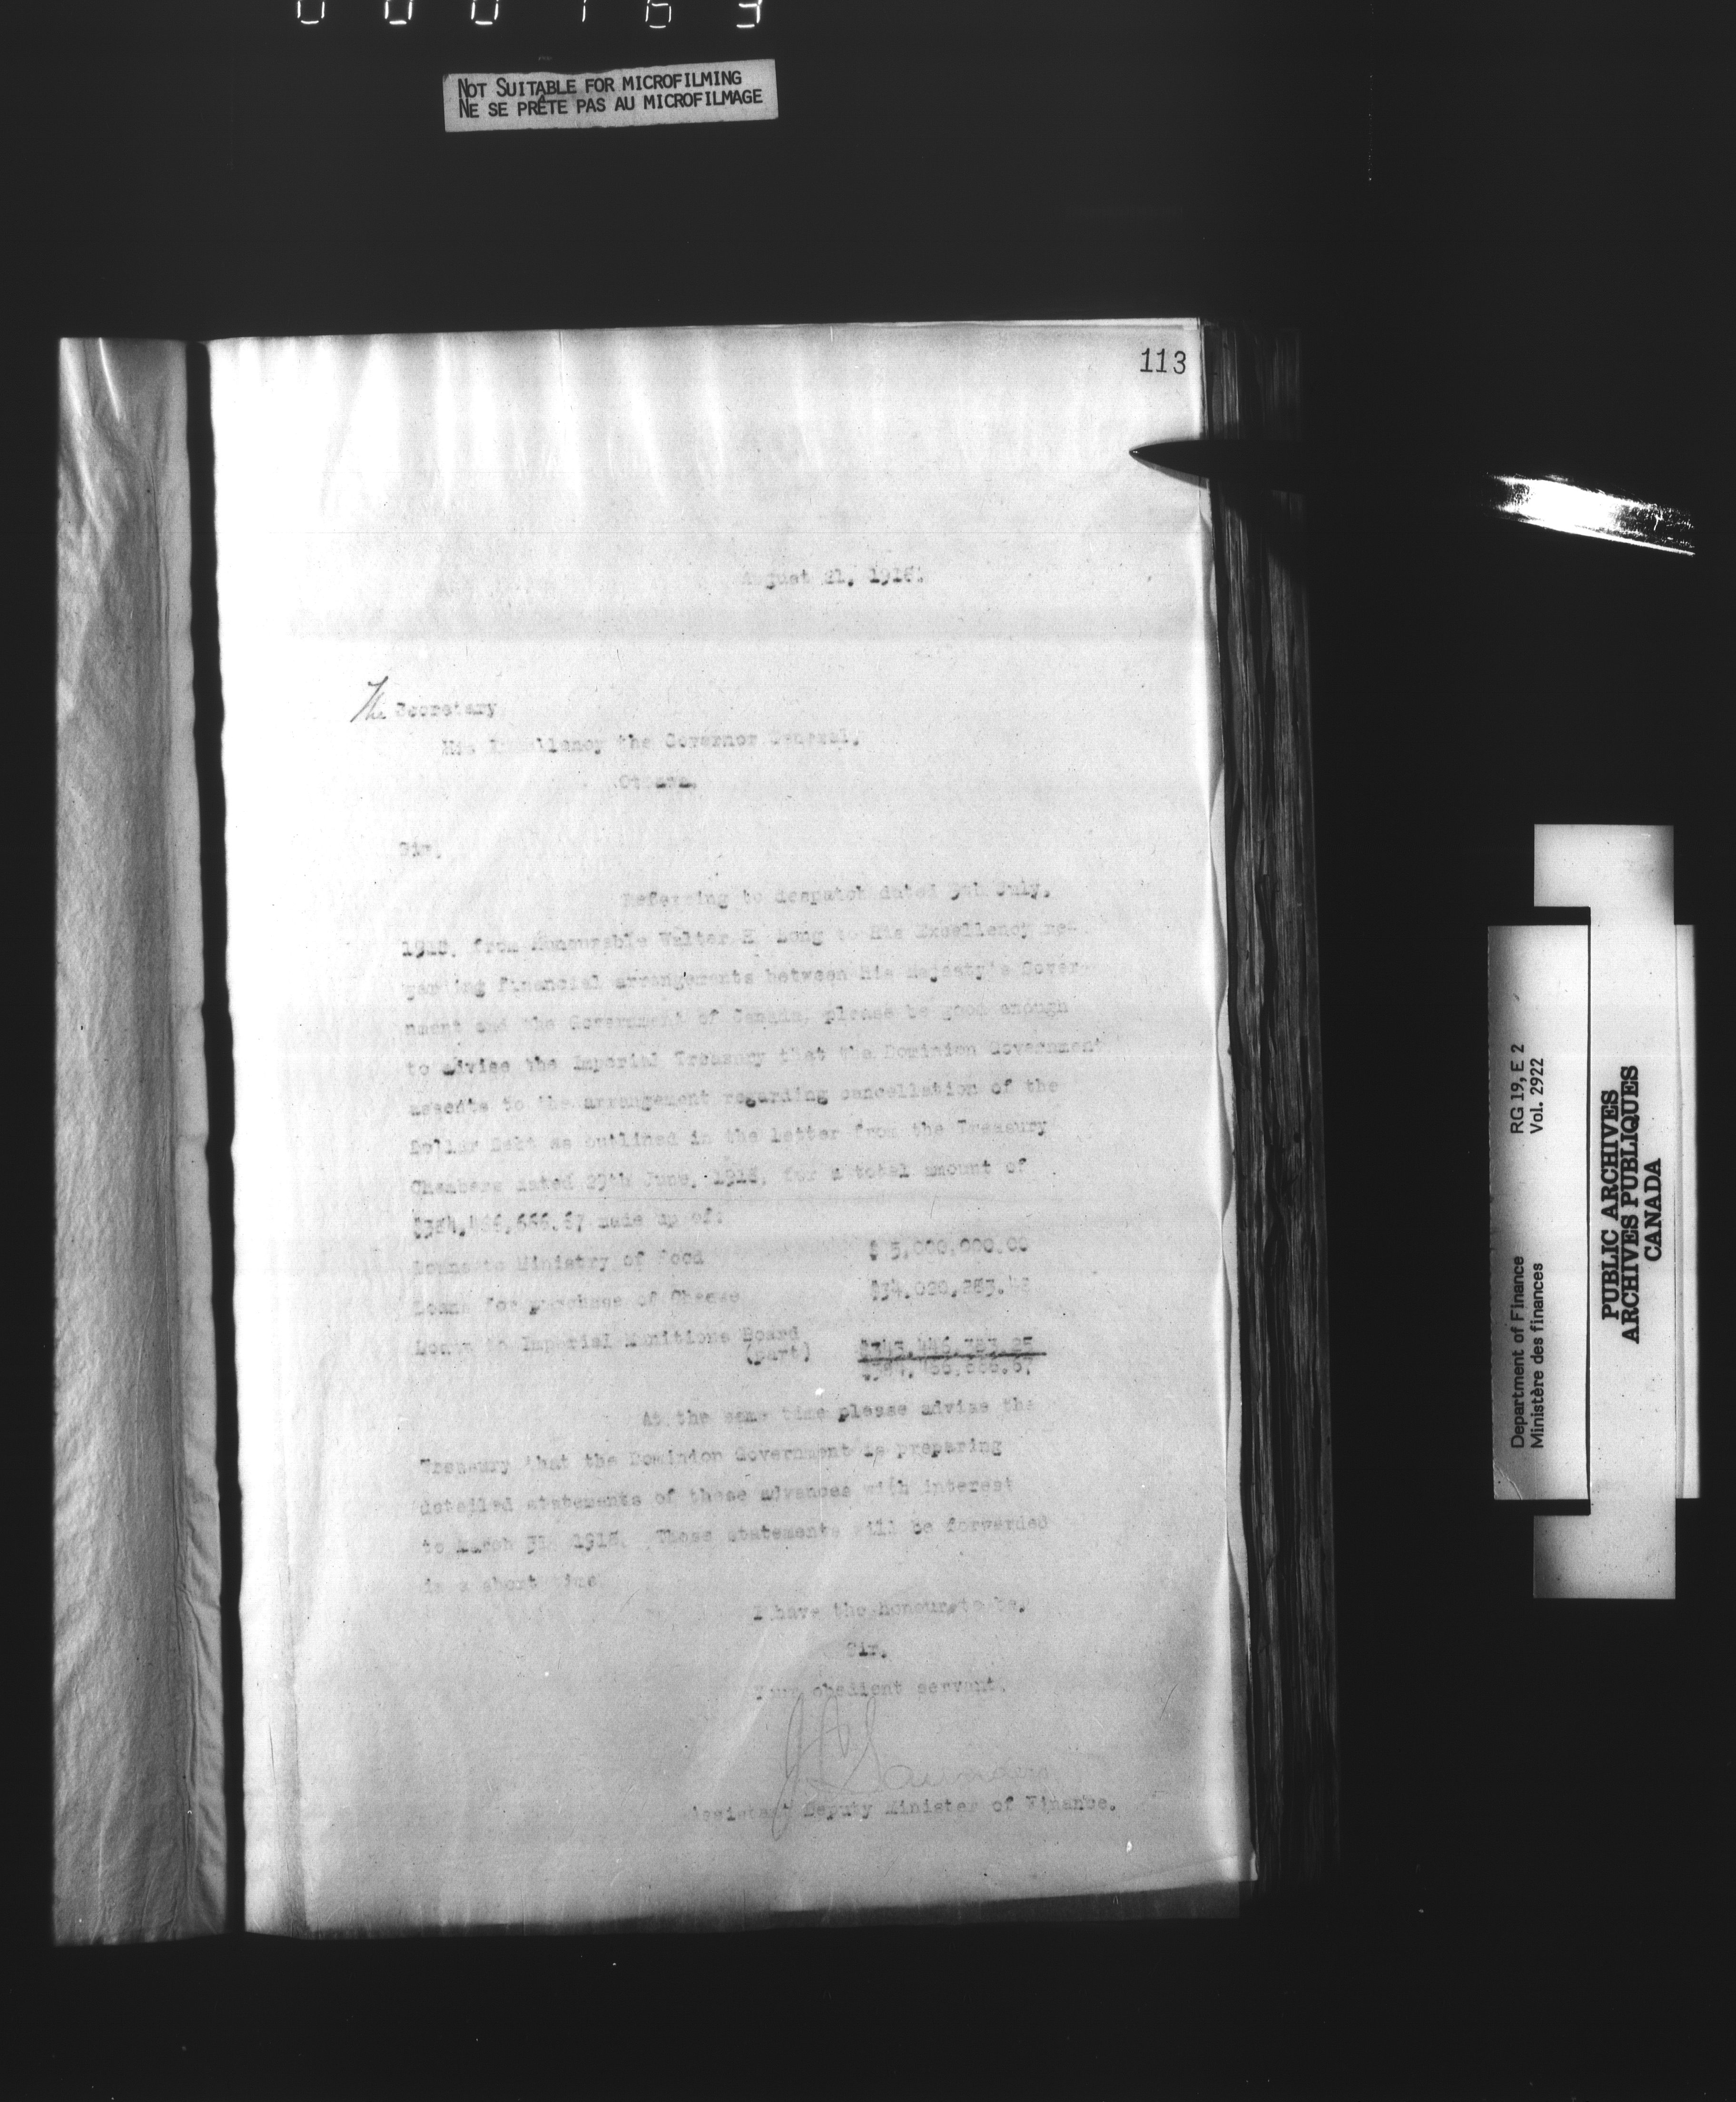 NOT SUITABLE FOR MICROFILMING
NE SE PRÊTE PAS AU MICROFILMAGE
113
August 21, 1918.
The Secretary
His Excellency the Governor General,
Ottawa.
Sir,
Referring to despatch dated July,
1918, from Honourable Walter H. Long to His Excellency re-
garding financial arrangements between His Majesty's Gover-
nment and the Government of Canada, please be good enough
to advise the Imperial Treasury that the Dominion Government
assents to the arrangement regarding cancellation of the
Dollar Debt as outlined in the letter from the Treasury
Chambers dated June, 1918, for a total amount of
made up of:
Loans to Ministry of Food $ 5,000,000.00
Loans for purchase of Cheese
Loans to Imperial Munitions Board
(part)
At the same time please advise the
Treasury that the Dominion Government is preparing
detailed statements of these advances with interest
to March 31, 1918. These statements will be forwarded
in a short time.
I have the honour to be,
Sir,
Your obedient servant,
J C Saunders
Assistant Deputy Minister of Finance.
Department of Finance RG 19, E 2
Ministère des finances Vol. 2922
PUBLIC ARCHIVES
ARCHIVES PUBLIQUES
CANADA